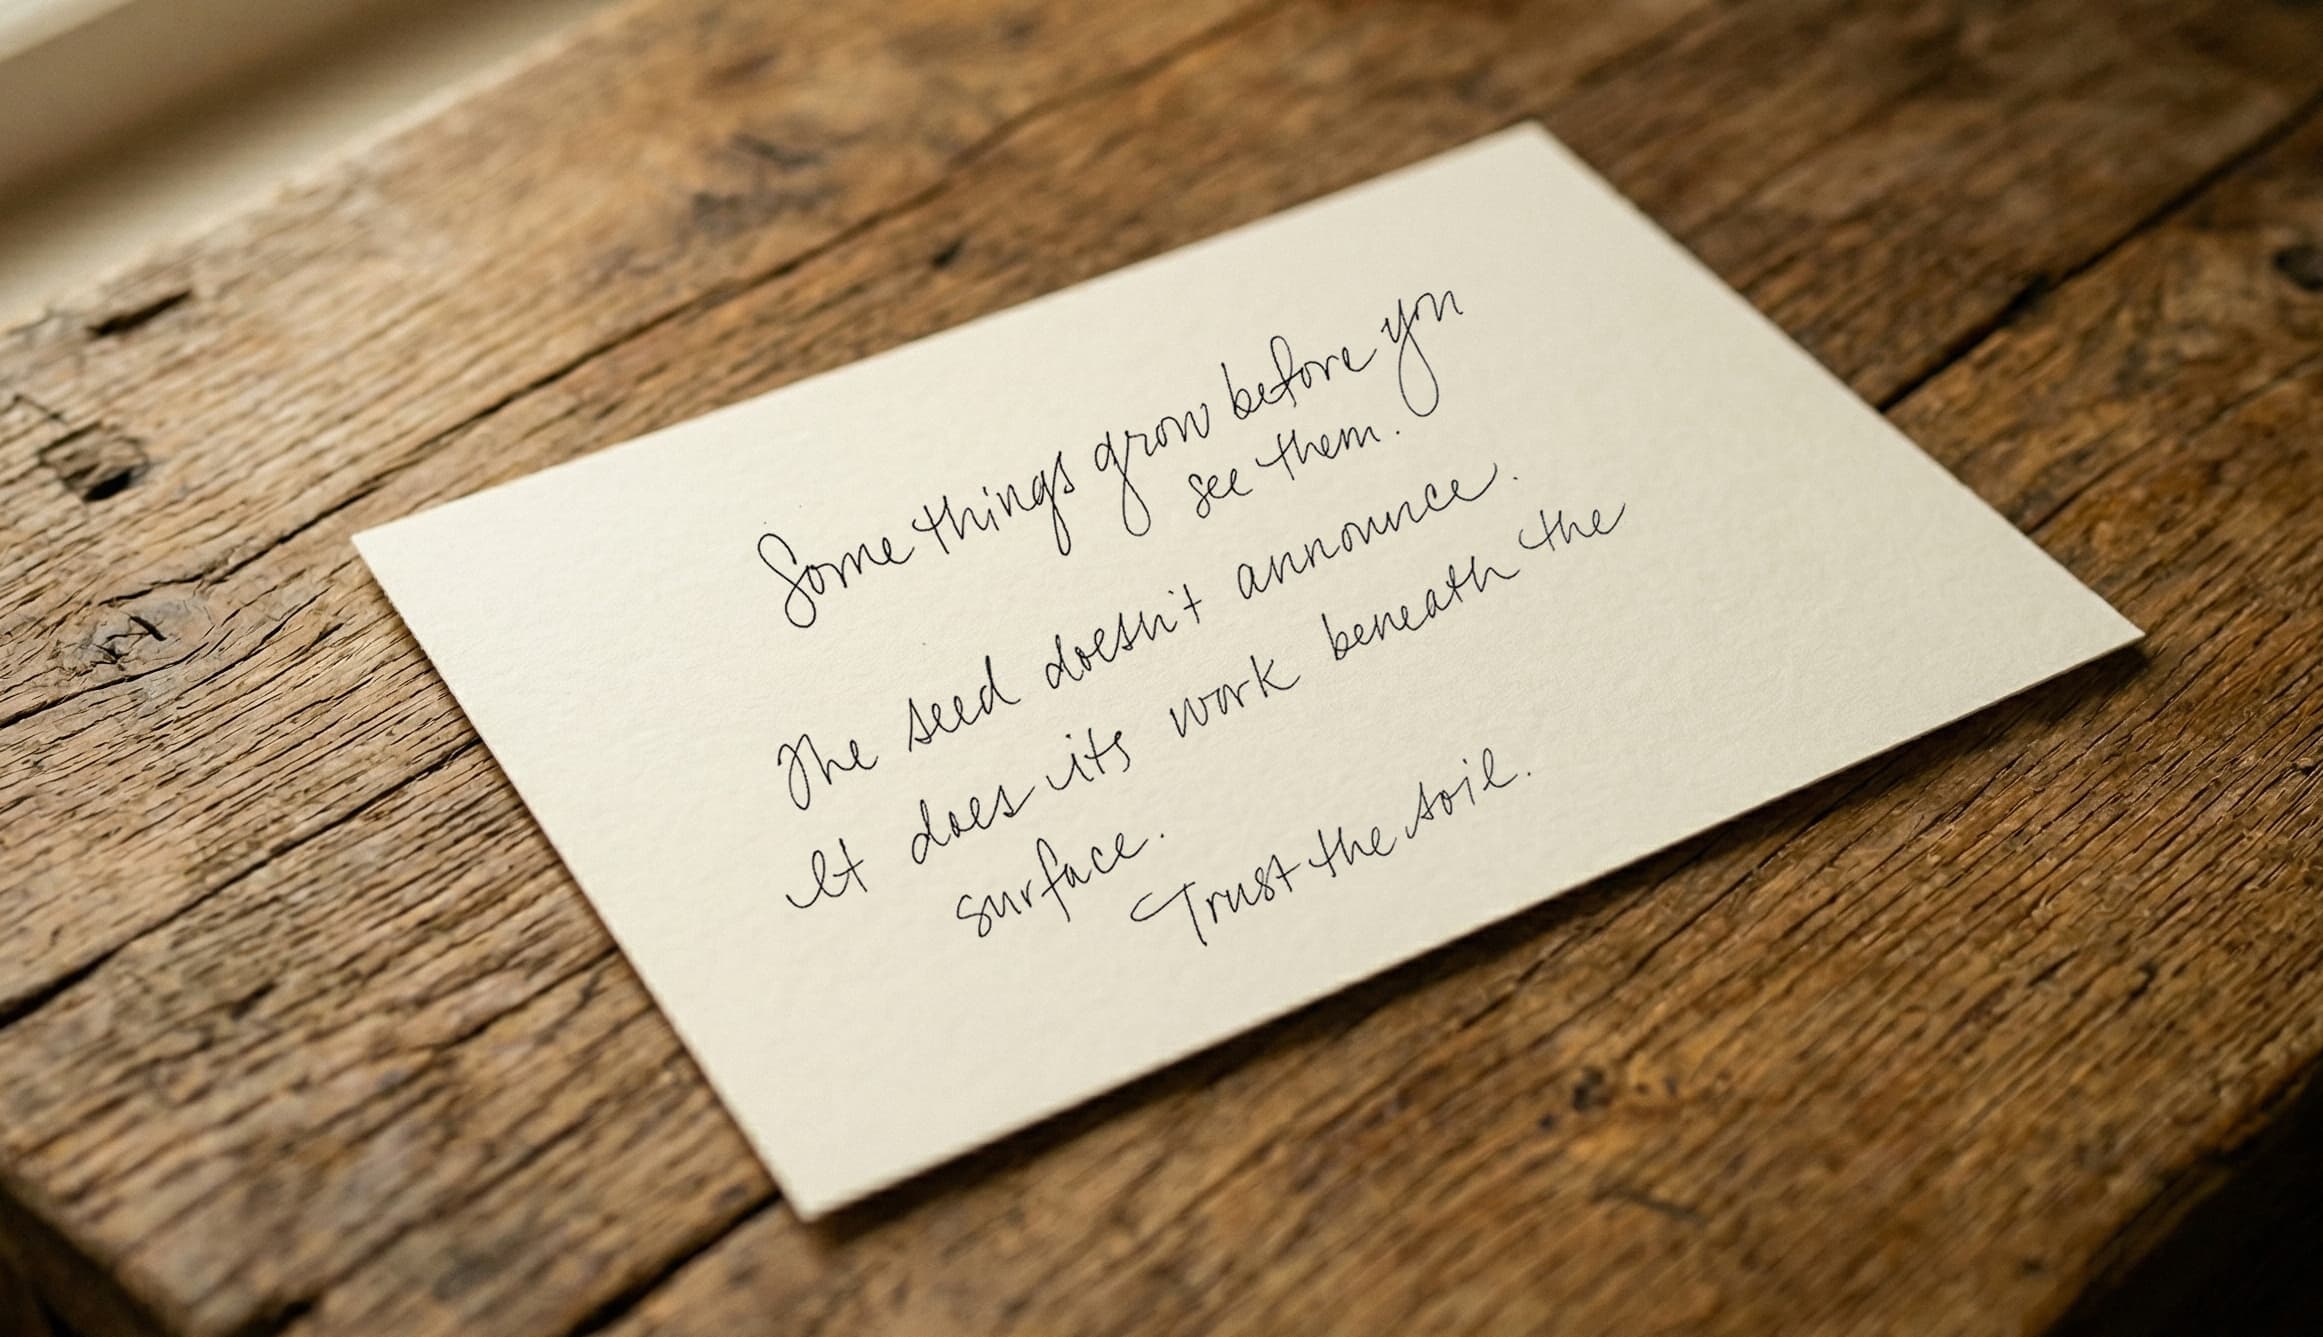 Some things grow before you
see them.
The seed doesn't announce.
It does its work beneath the
surface.
Trust the soil.